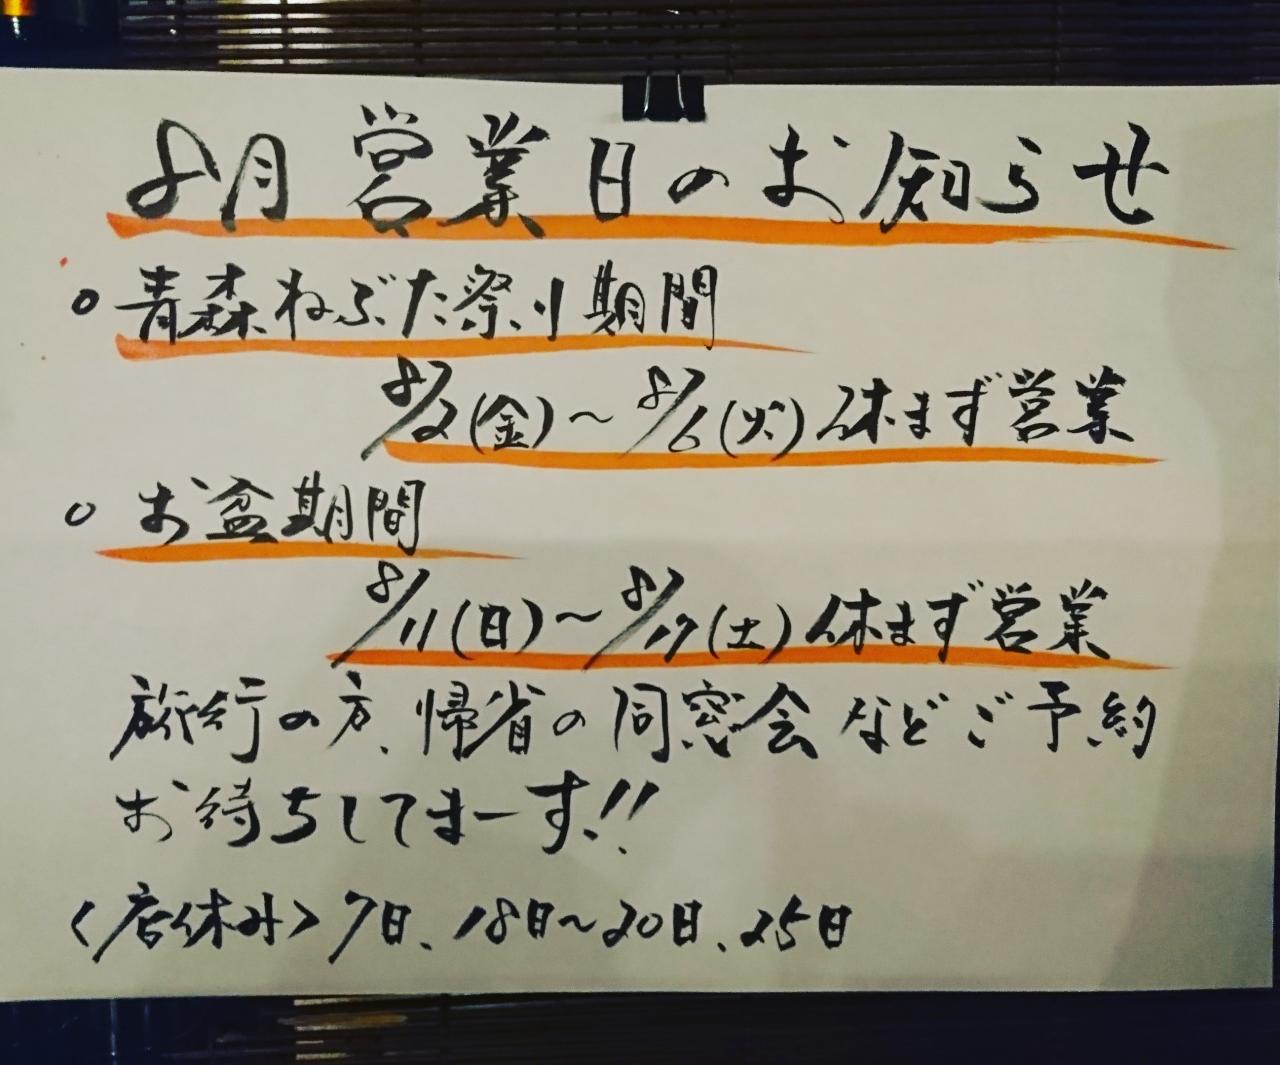 8月営業日のお知らせ
○青森ねぶた祭り期間
8/2(金)～8/6(火)休まず営業
○お盆期間
8/11(日)～8/17(土)休まず営業
旅行の方、帰省の同窓会などご予約
お待ちしてまーす!!
〈店休み〉7日、18日～20日、25日